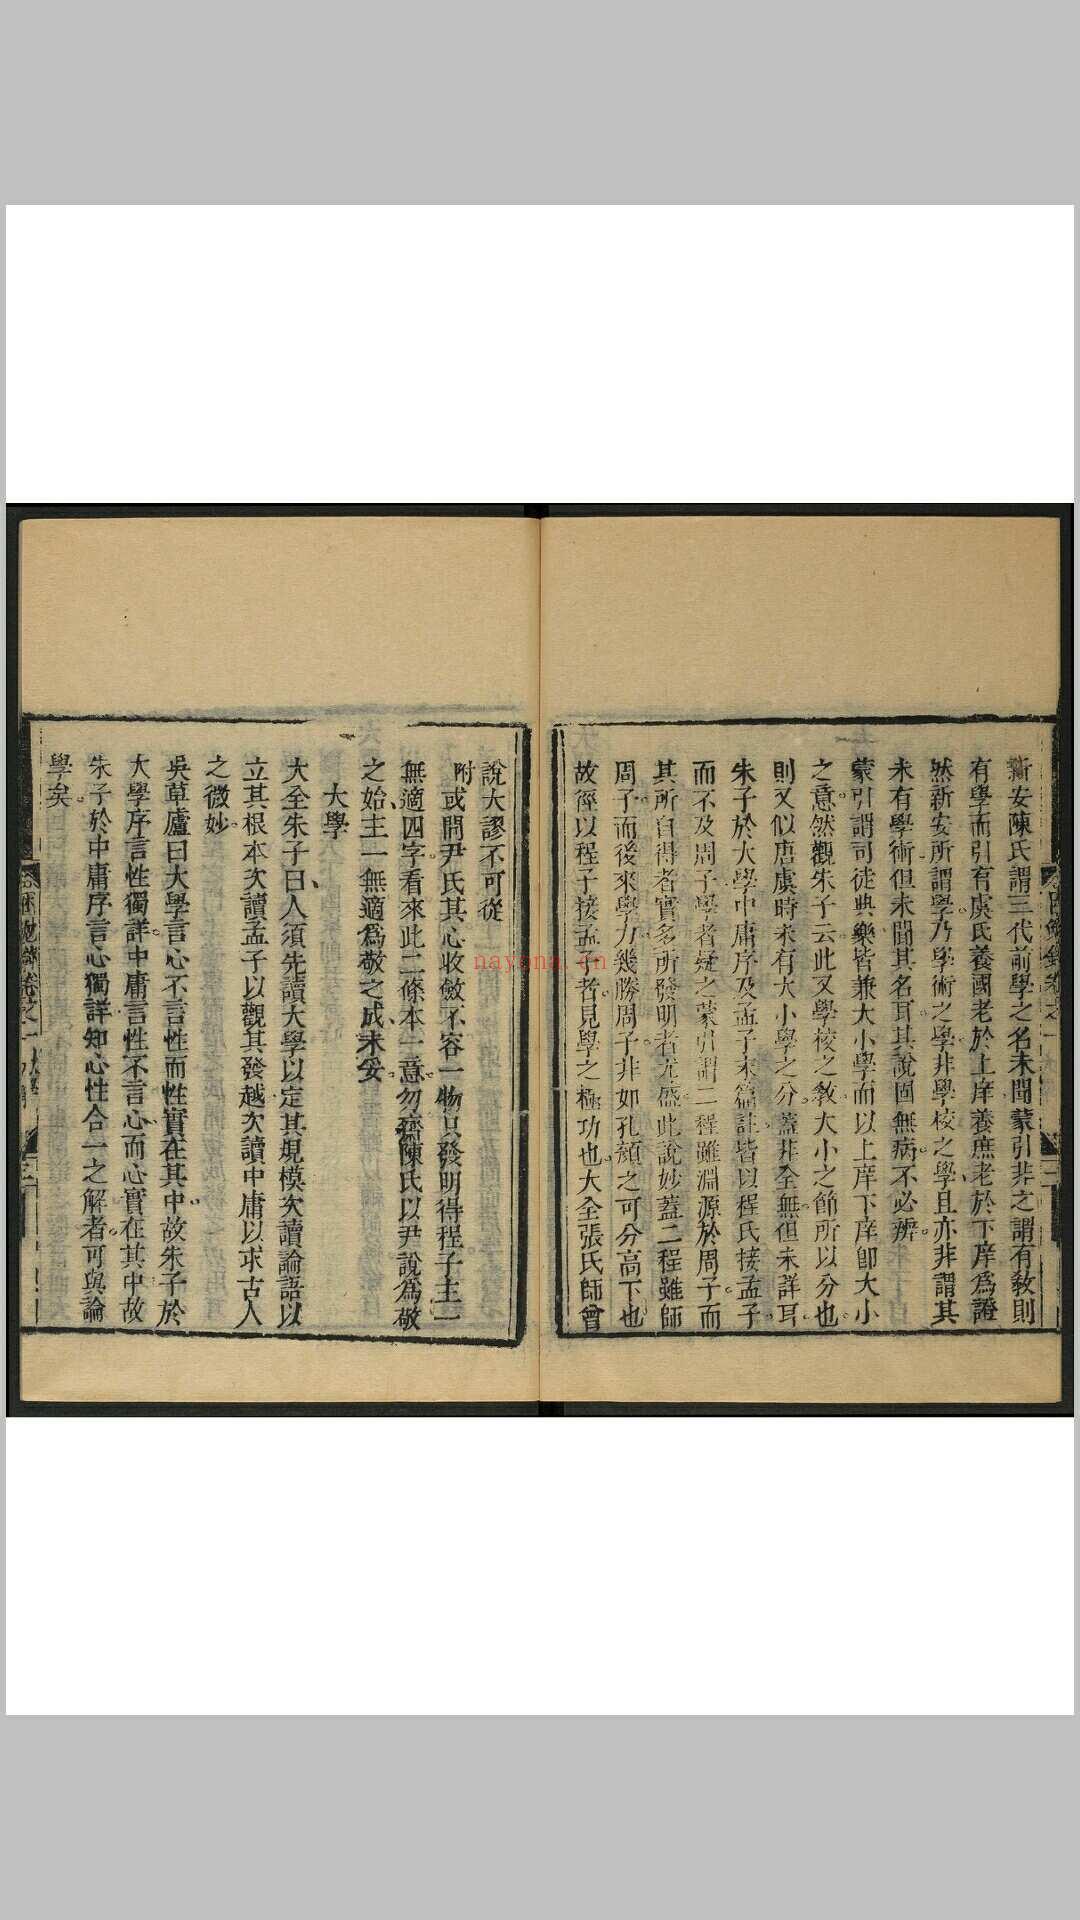 新安陳氏謂三代前學之名未聞蒙引非之謂有敎則
有學而引有虞氏養國老於上庠養庶老於下庠爲證
然新安所謂學乃學術之學非學校之學且亦非謂其
未有學術但未聞其名耳其說固無病不必辨
蒙引謂司徒典樂皆兼大小學而以上庠下庠卽大小
之意然觀朱子云此又學校之敎大小之節所以分也
則又似唐虞時未有大小學之分蓋非全無但未詳耳
朱子於大學中庸序及孟子末篇註皆以程氏接孟子
而不及周子學者疑之蒙引謂二程雖淵源於周子而
其所自得者實多所發明者尤盛此說妙蓋二程雖師
周子而後來學力幾勝周子非如孔顏之可分高下也
故徑以程子接孟子者見學之極功也大全張氏師曾
說大謬不可從
附或問尹氏其心收斂不容一物只發明得程子主一
無適四字看來此二條本一意勿齋陳氏以尹說爲敬
之始主一無適爲敬之成未妥
大學
大全朱子曰人須先讀大學以定其規模次讀論語以
立其根本次讀孟子以觀其發越次讀中庸以求古人
之微妙
吳草廬曰大學言心不言性而性實在其中故朱子於
大學序言性獨詳中庸言性不言心而心實在其中故
朱子於中庸序言心獨詳知心性合一之解者可與論
學矣
nayona.cn